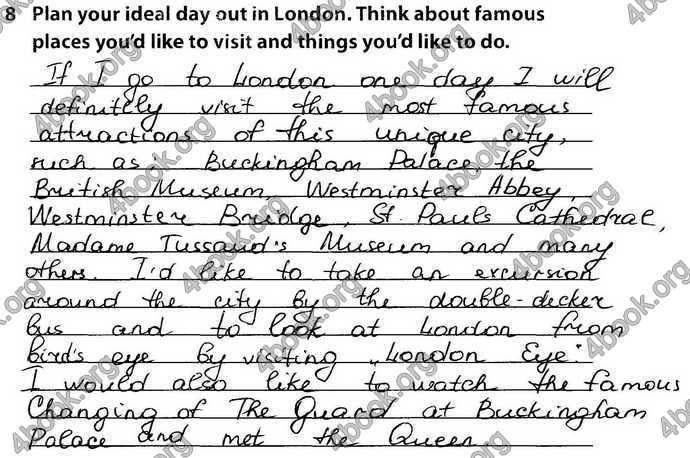 8 Plan your ideal day out in London. Think about famous
places you'd like to visit and things you'd like to do.
If I go to London one day I will
definitely visit the most famous
attractions of this unique city,
such as Buckingham Palace, the
British Museum, Westminster Abbey,
Westminster Bridge, St. Paul's Cathedral,
Madame Tussaud's Museum and many
others. I'd like to take an excursion
around the city by the double-decker
bus and to look at London from
bird's eye by visiting „London Eye".
I would also like to watch the famous
Changing of The Guard at Buckingham
Palace and met the Queen.
4book.org